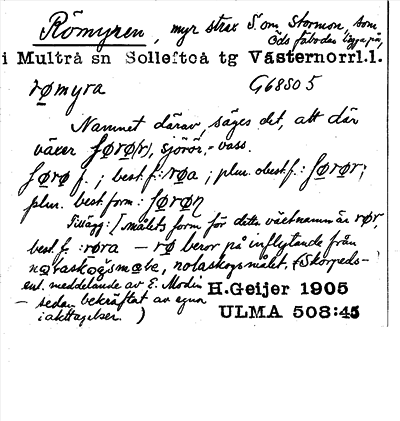 Römyren, myr strax S om Stormon, som
Öds fäbodar ligga på,
i Multrå sn Sollefteå tg Västernorrl.l.
rømyra G6850 5
Namnet därav, säges det, att där
växer ʃørø(r), sjörör, - vass.
ʃørø f.; best. f: røa; plur. obest. f.: ʃørør;
plur. best. form: ʃørøn
Tillägg: [målets form för detta växtnamn är rør,
best. f. røra — rø beror på inflytande från
nolaskogsmålet, (Skorpeds-)
enl. meddelande av E. Modin H.Geijer 1905
— sedan bekräftat av egna
iakttagelser.) ULMA 508:45